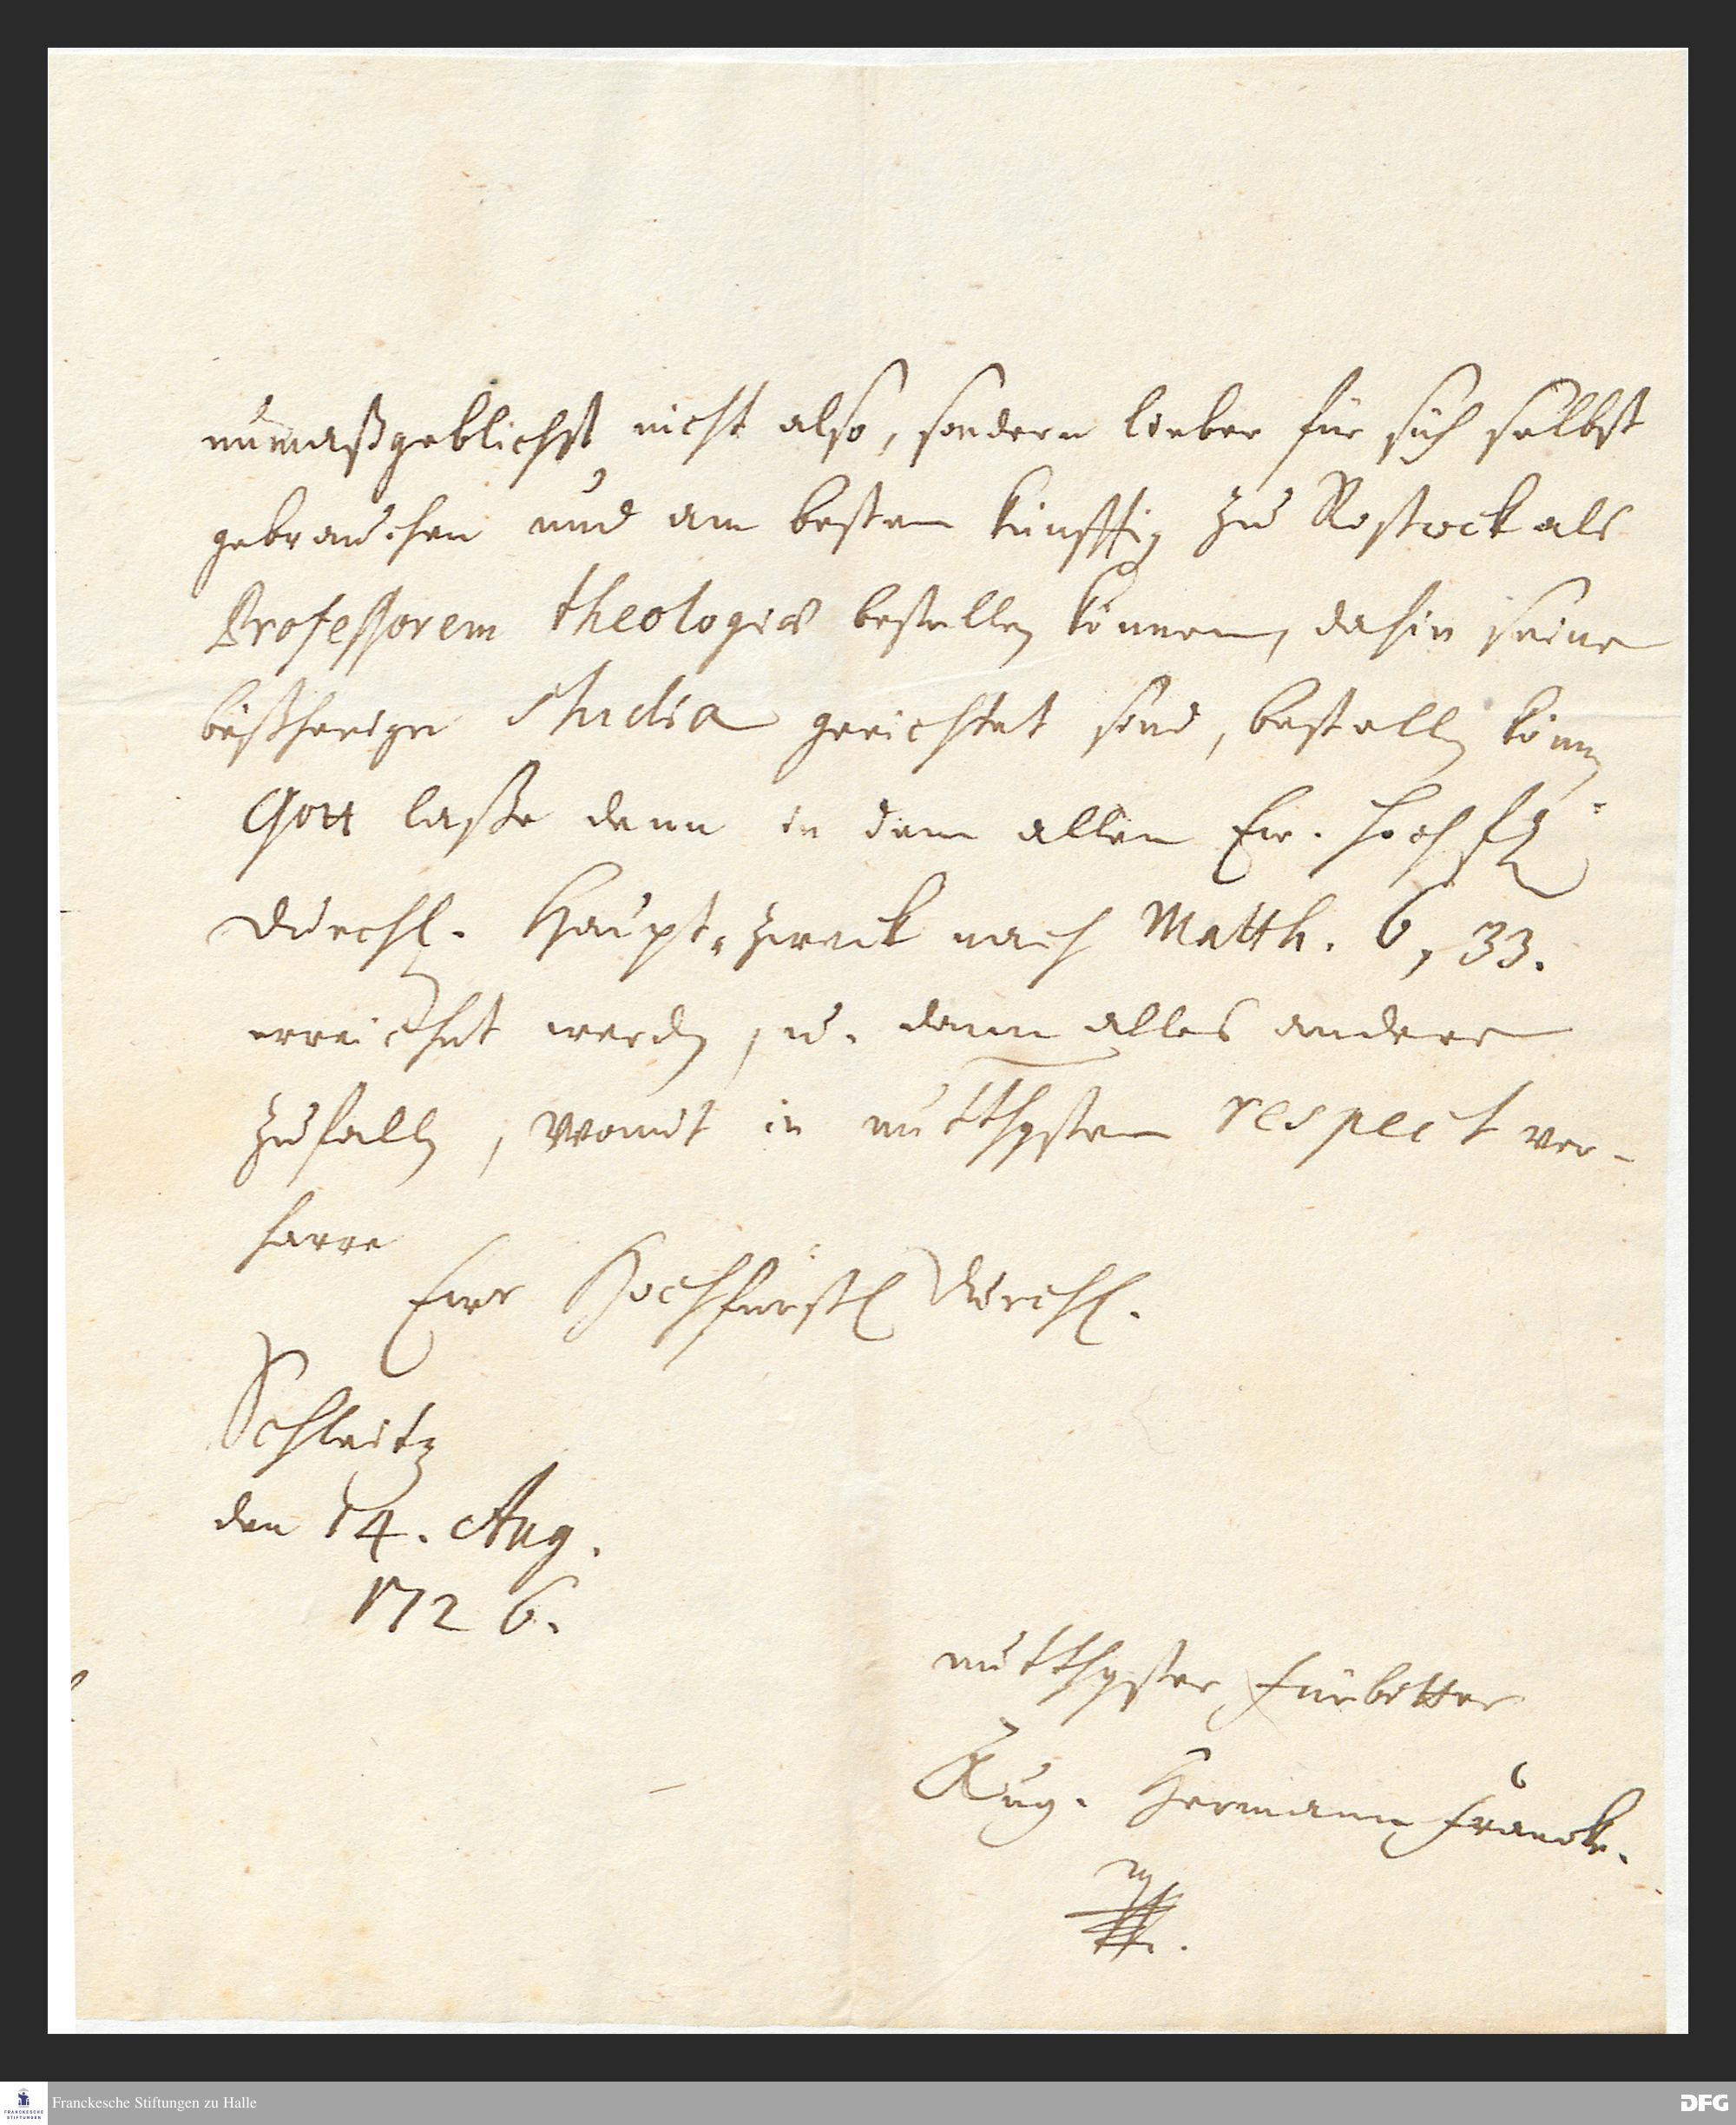 unmaßgeblichst nicht also, sondern lieber für sich selbst
gebrauchen und am besten künfftig zu Rostock als
Professorem theologiæ bestellen können, dahin seine
bißherige Studia gerichtet sind, bestellen können
Gott laße denn in dem allen Ew. Hochf
Durchl. Haupt-Zweck nach Matth. 6, 33.
erreichet werden, u. dann alles andere
zufallen, womit in unterthgstem respect ver-
harre
Ewr Hochfürstl Durchl.
Schleitz
den 14. Aug.
1726.
unterthgster Fürbitter
Aug. Hermann Francke.
Franckesche Stiftungen zu Halle
FRANCKESCHE
STIFTUNGEN
DFG